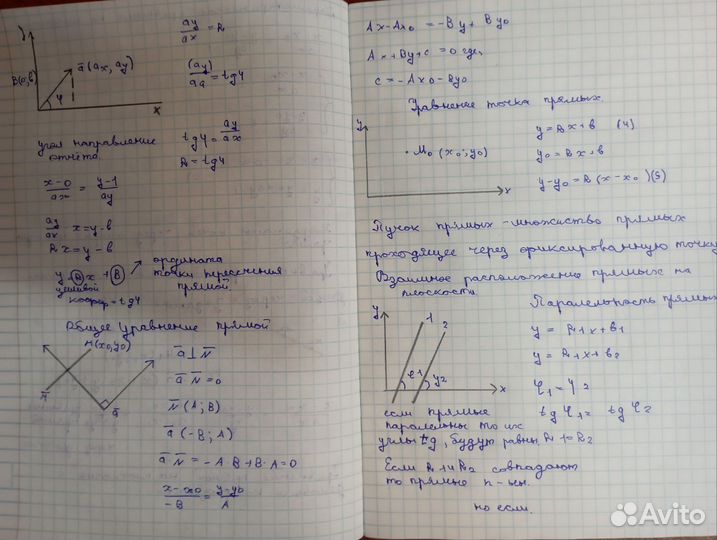 y
B(0;в)
ā (ax, ay)
φ
x
ay/ax = k
(ay)/ax = tgφ
tgφ = ay/ax
k = tgφ
угол направление
отчёта.
x-0/ax = y-1/ay
ay/ax x = y-в
kx = y-в
y = kx + B
ордината
точки пересечения
прямой.
угловой
коэфф = tgφ
Общее уравнение прямой
M(x0, y0)
N̄
ā
ā ⊥ N̄
ā N̄ = 0
N̄ (A; B)
ā (-B; A)
ā N̄ = -A·B + B·A = 0
x-x0/-B = y-y0/A
Ax-Ax0 = -By+By0
Ax+By+c = 0 где,
c = -Ax0-By0
Уравнение точка прямых.
y
• M0 (x0; y0)
x
y = kx+в (4)
y0 = kx+в
y-y0 = k(x-x0)(5)
Пучок прямых - множество прямых
проходящее через фиксированную точку
Взаимное расположение прямых на
плоскости.
Паралельность прямых
y
1
2
φ1
φ2
x
y = k1x+в1
y = k1x+в2
φ1 = φ2
tgφ1 = tgφ2
если прямые
паралельны то их
углы tg, будут равны, k1 = k2
Если k1 и k2 совпадают
то прямые п-ны.
но если.
Avito